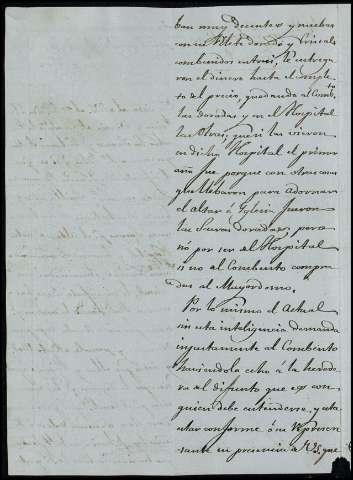 ban muy decentes y nuebas
con un filete dorado y cristales
combenidos en tres, le entrega
ron el dinero hasta el comple
to del precio, quedando al Comb.to
las doradas y en el Hospital
las otras; que si las vieron
en dicho Hospital el primer
año fue porque con otras cosas
que llebaron para adornar
el altar ó Yglecia fueron
las Sacras doradas, pero
nó por ser del Hospital
si no al Combento compra
das al Mayordomo.
Por lo mismo el Actual
sin esta inteligencia demanda
injustamente al Combento
haciendole cabo á la herede
ra del difunto que es con
quien debe entenderse, y esta
estar conforme ó su represen
tante en presencia de V.S. que